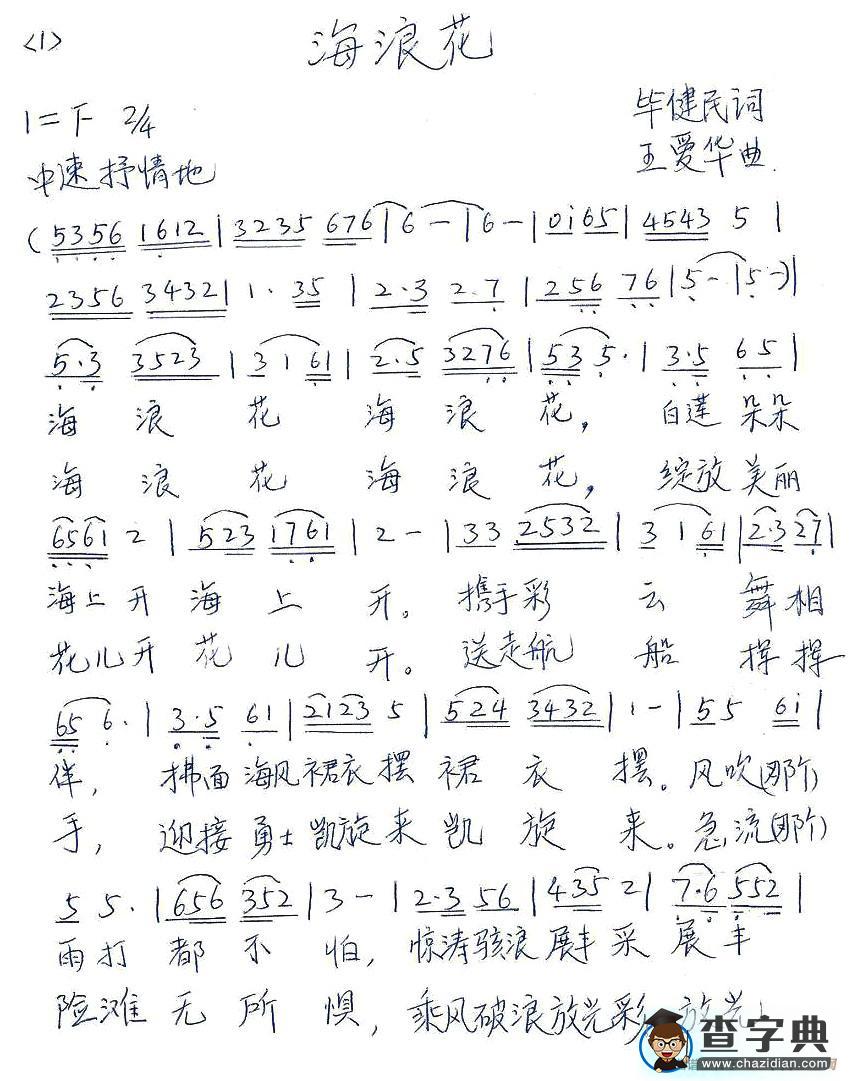 <1>
海浪花
1=F 2/4
毕健民词
中速抒情地
王爱华曲
(5356 1612|3235 676|6-|6-|0i65|4543 5|
2356 3432|1·35|2·3 2·7|256 76|5-|5-)|
5·3 3523|3161|2·5 3276|535·|3·5 65|
海浪花海浪花,白莲朵朵
海浪花海浪花,绽放美丽
6561 2|523 1761|2-|33 2532|3161|2·3 27|
海上开海上开。携手彩云舞相
花儿开花儿开。送走航船挥挥
65 6·|3·5 61|2123 5|524 3432|1-|55 6i|
伴,拂面海风裙衣摆裙衣摆。风吹(那个)
手,迎接勇士凯旋来凯旋来。急流(那个)
5 5·|656 352|3-|2·3 56|435 2|7·6 552|
雨打都不怕,惊涛骇浪展丰采展丰
险滩无所惧,乘风破浪放光彩放光
查字典
www.chazidian.com